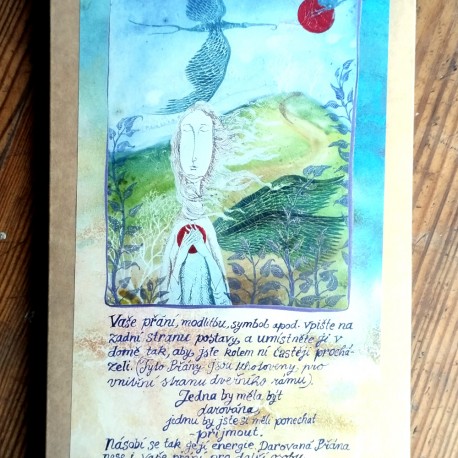 Vaše přání, modlitbu, symbol apod. vpište na
zadní stranu postavy, a umístněte ji v
domě tak, aby jste kolem ní častěji prochá-
zeli. (Tyto Břány jsou zhotoveny pro
vnitřní stranu dveřního rámu).
Jedna by měla být
darována,
jednu by jste si měli ponechat
- přijmout.
Násobí se tak její energie. Darovaná Břána
nese i vaše přání pro další osobu